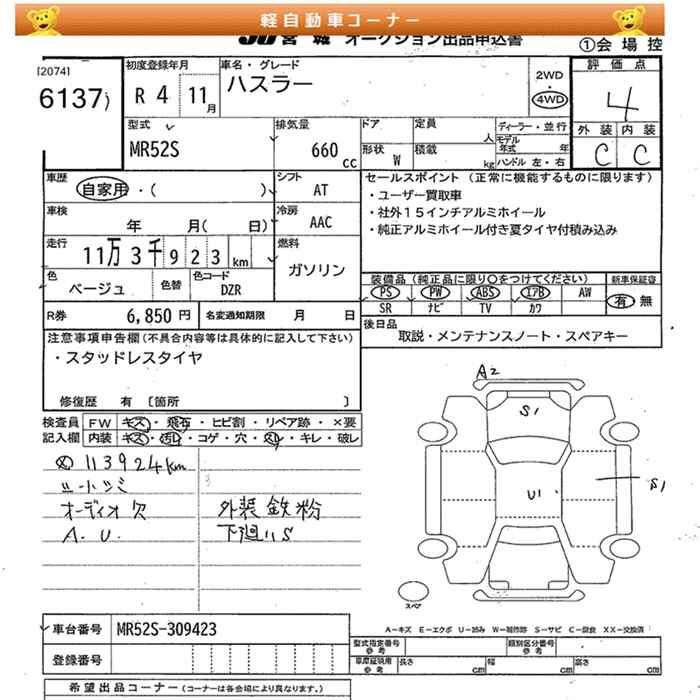 軽自動車コーナー
JU宮城 オークション出品申込書
①会場控
[2074]
6137)
初度登録年月
R 4 11月
車名・グレード
ハスラー
2WD
・
4WD
評価点
4
外装 内装
C C
型式
MR52S
排気量
660 cc
ドア
形状 W
定員 人
積載 kg
ディーラー・並行
モデル年式 年
ハンドル 左・右
車歴
自家用・( )
シフト
AT
車検
年 月( 日)
冷房
AAC
走行
11万3千923km
燃料
ガソリン
色
ベージュ
色替
色コード
DZR
セールスポイント (正常に機能するものに限ります)
・ユーザー買取車
・社外15インチアルミホイール
・純正アルミホイール付き夏タイヤ付積み込み
装備品 (純正品に限り○をつけてください)
新車保証書
PS PW ABS エアB AW
有 無
SR ナビ TV カワ
R券 6,850円
名変通知期限 月 日
後日品
取説・メンテナンスノート・スペアキー
注意事項申告欄 (不具合内容等は具体的に記入して下さい)
・スタッドレスタイヤ
修復歴 有 〔箇所 〕
検査員記入欄
FW キズ・飛石・ヒビ割・リペア跡・×要
内装 キズ・汚れ・コゲ・穴・スレ・キレ・破レ
113924km
シートシミ
オーディオ欠
A. U.
外装鉄粉
下廻りS
A2
S1
U1
S1
スペア
A-キズ E-エクボ U-凹み W-補修跡 S-サビ C-腐食 XX-交換済
車台番号 MR52S-309423
登録番号
型式指定番号 参考
類別区分番号 参考
車庫証明用 参考
長さ cm
幅 cm
高さ cm
希望出品コーナー (コーナーは各会場により異なります。)